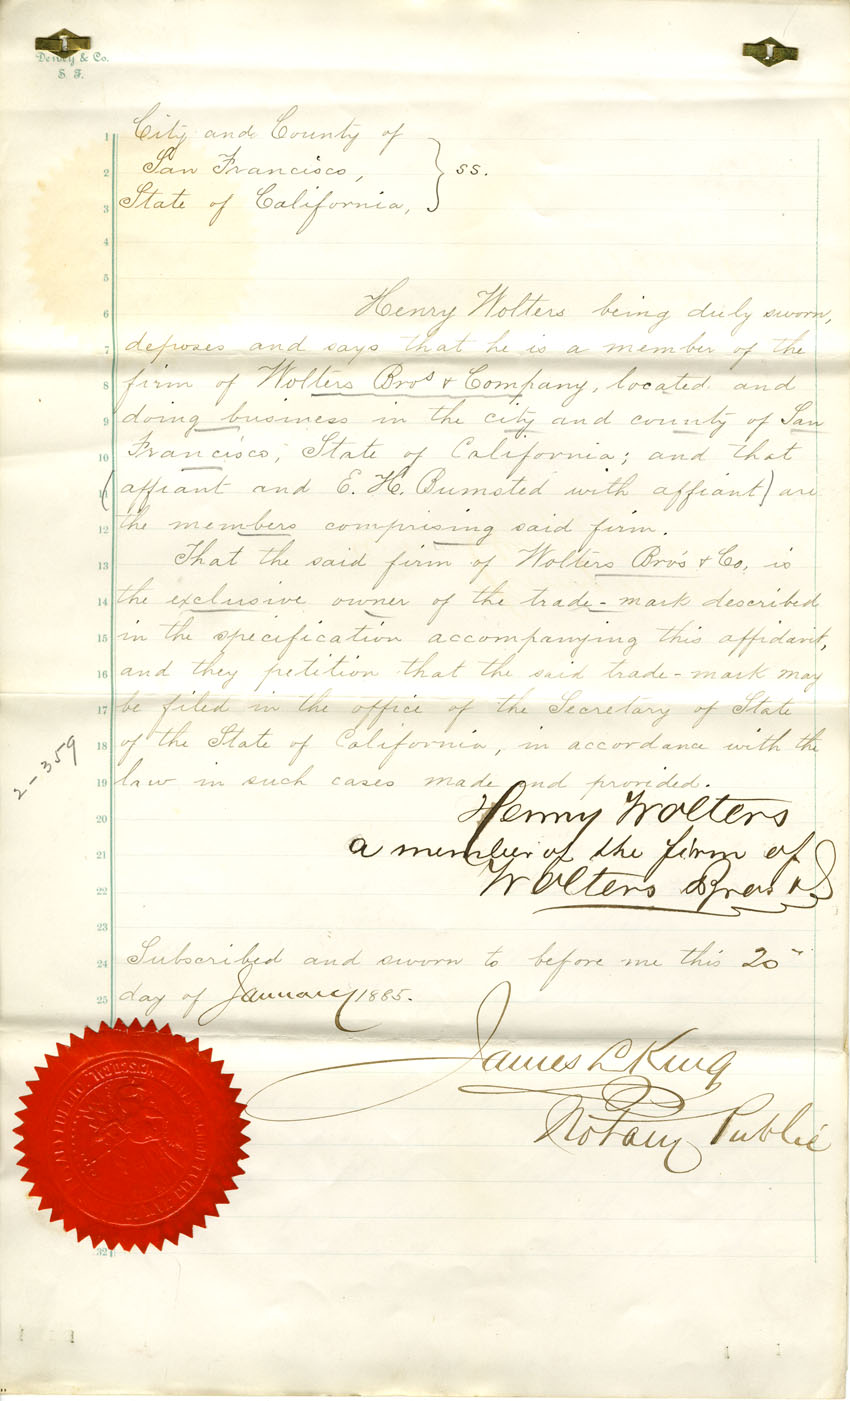 Dewey & Co.
S. F.
1 City and County of
2 San Francisco, } ss.
3 State of California,
4
5
6 Henry Wolters being duly sworn,
7 deposes and says that he is a member of the
8 firm of Wolters Bros & Company, located and
9 doing business in the city and county of San
10 Francisco, State of California; and that
11 (affiant and E. H. Bumsted with affiant) are
12 the members comprising said firm.
13 That the said firm of Wolters Bro's & Co, is
14 the exclusive owner of the trade-mark described
15 in the specification accompanying this affidavit,
16 and they petition that the said trade-mark may
17 be filed in the office of the Secretary of State
18 of the State of California, in accordance with the
19 law in such cases made and provided.
2-359
20 Henry Wolters
21 a member of the firm of
22 Wolters Bros &
23
24 Subscribed and sworn to before me this 20
25 day of January 1885.
James L King
Notary Public
32